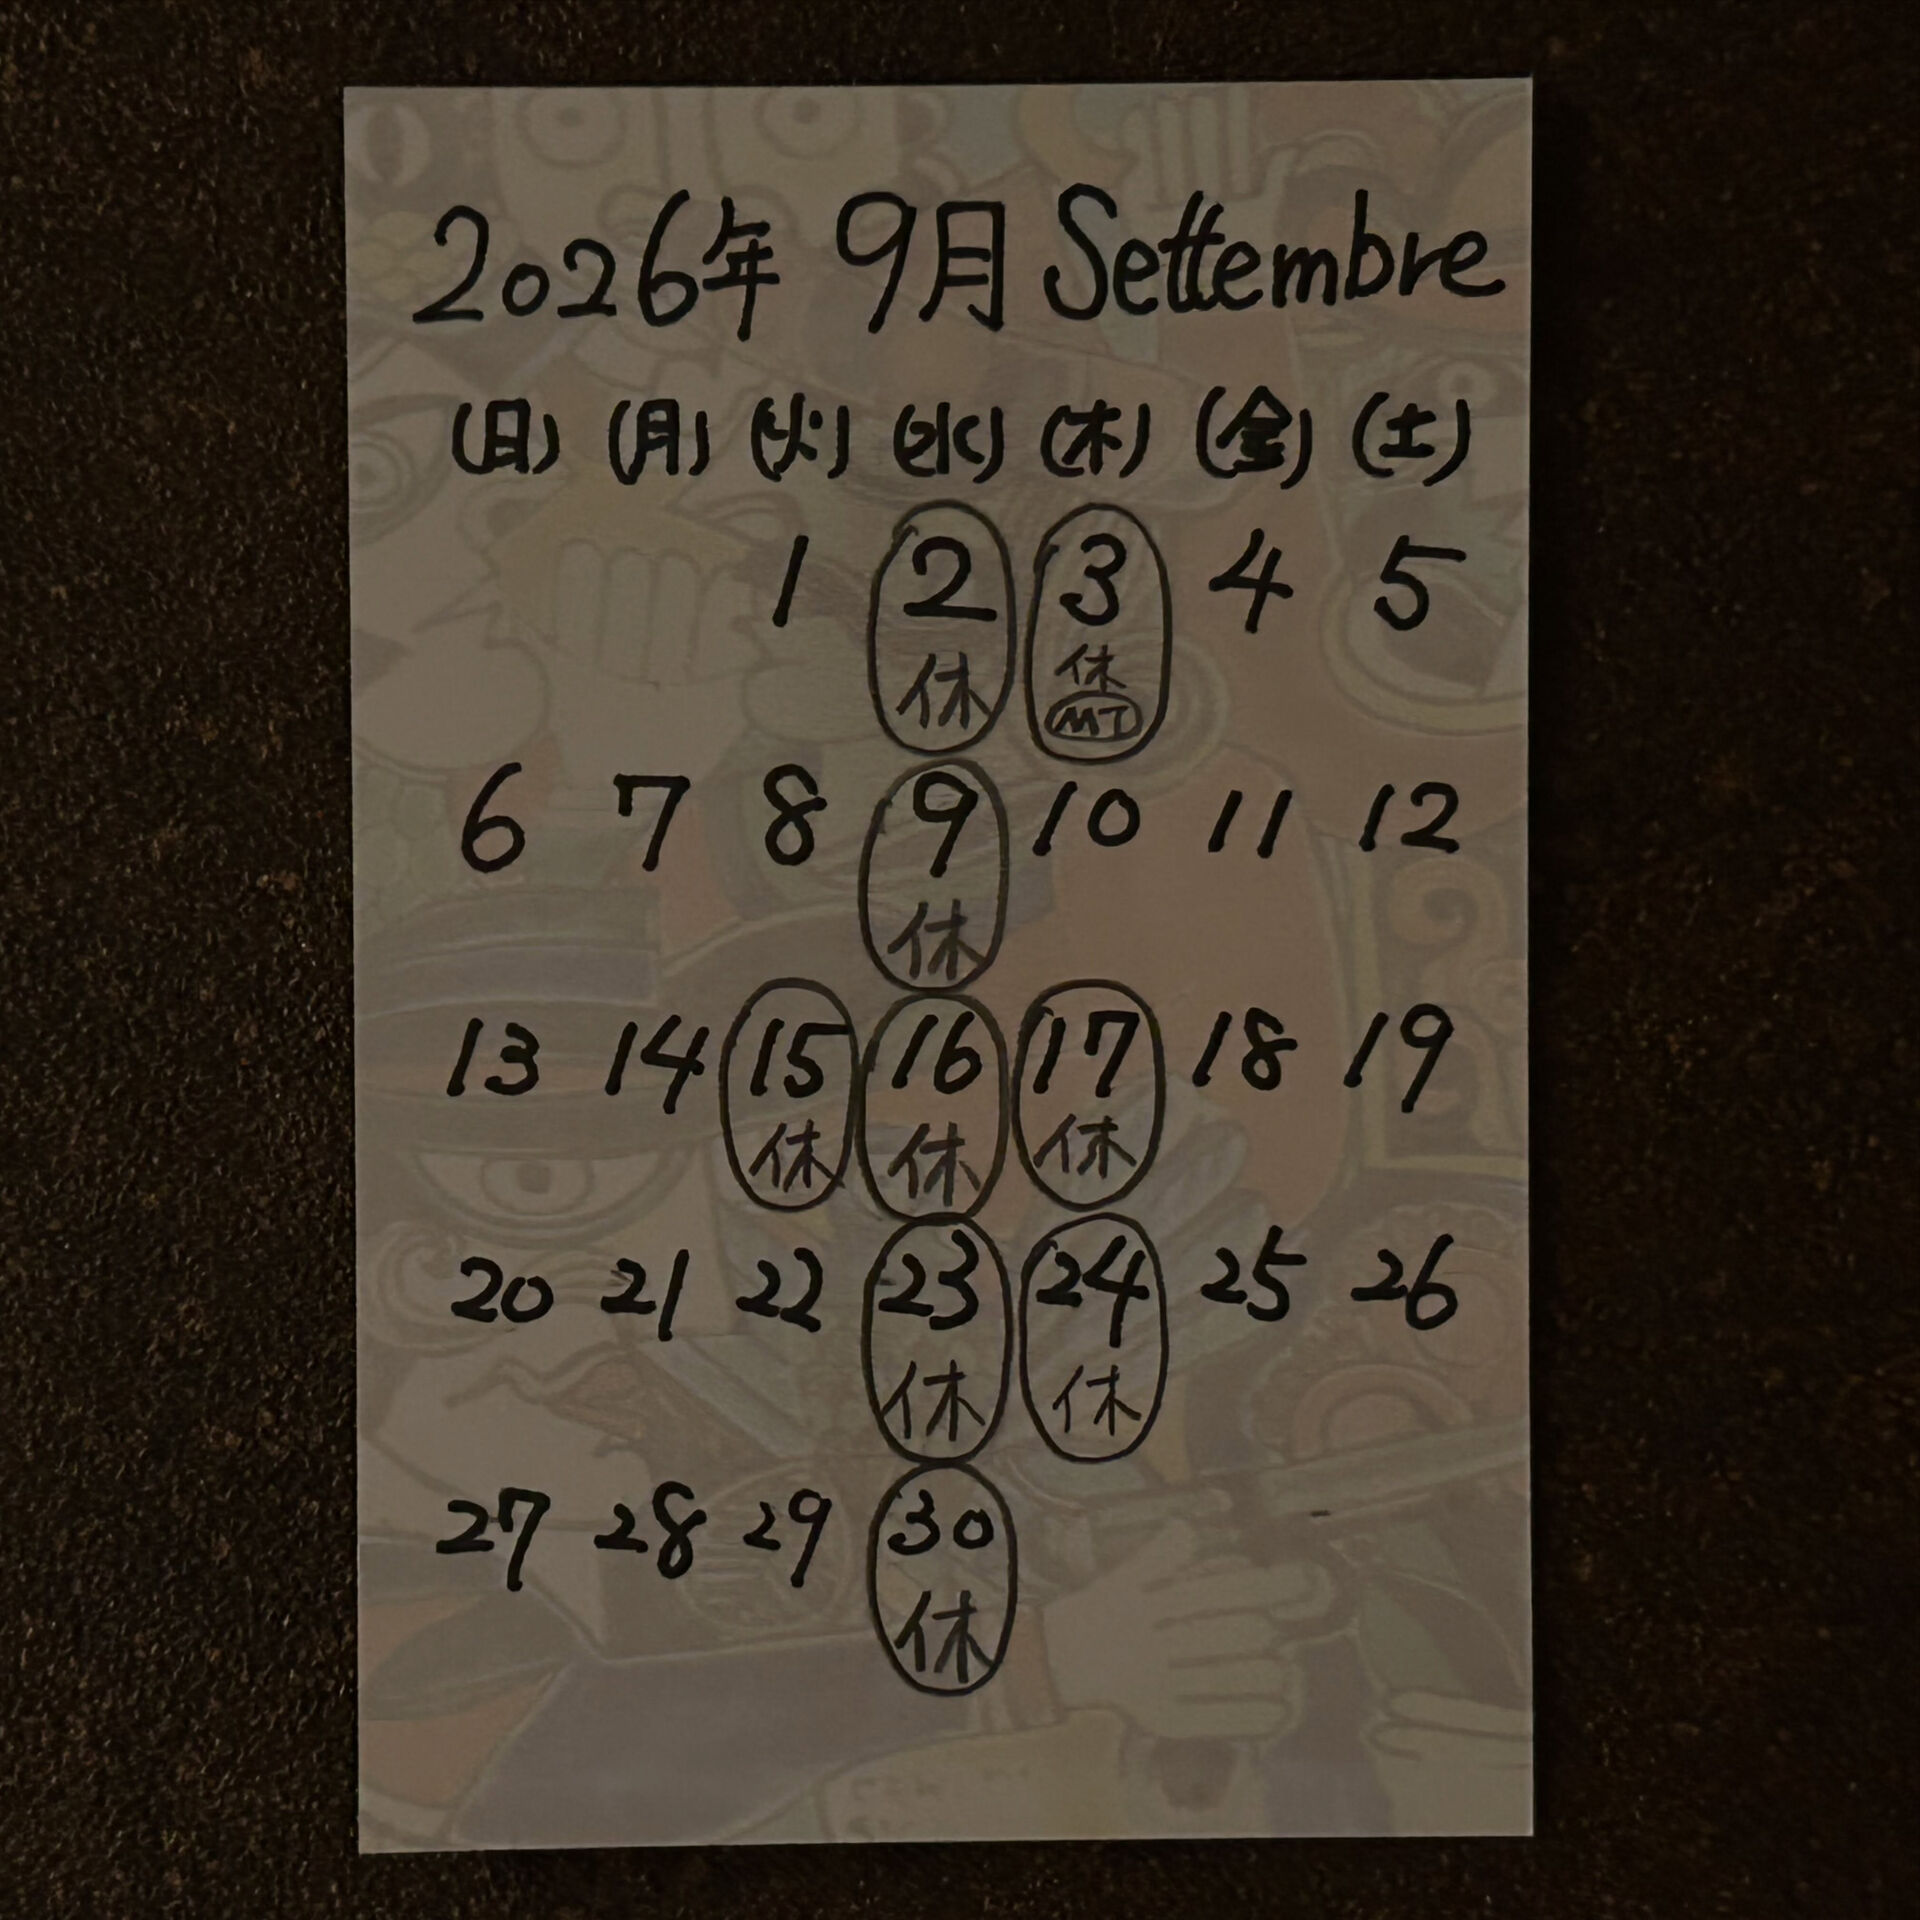 2026年 9月 Settembre
(日) (月) (火) (水) (木) (金) (土)
1 2 3 4 5
休 休
MT
6 7 8 9 10 11 12
休
13 14 15 16 17 18 19
休 休 休
20 21 22 23 24 25 26
休 休
27 28 29 30
休